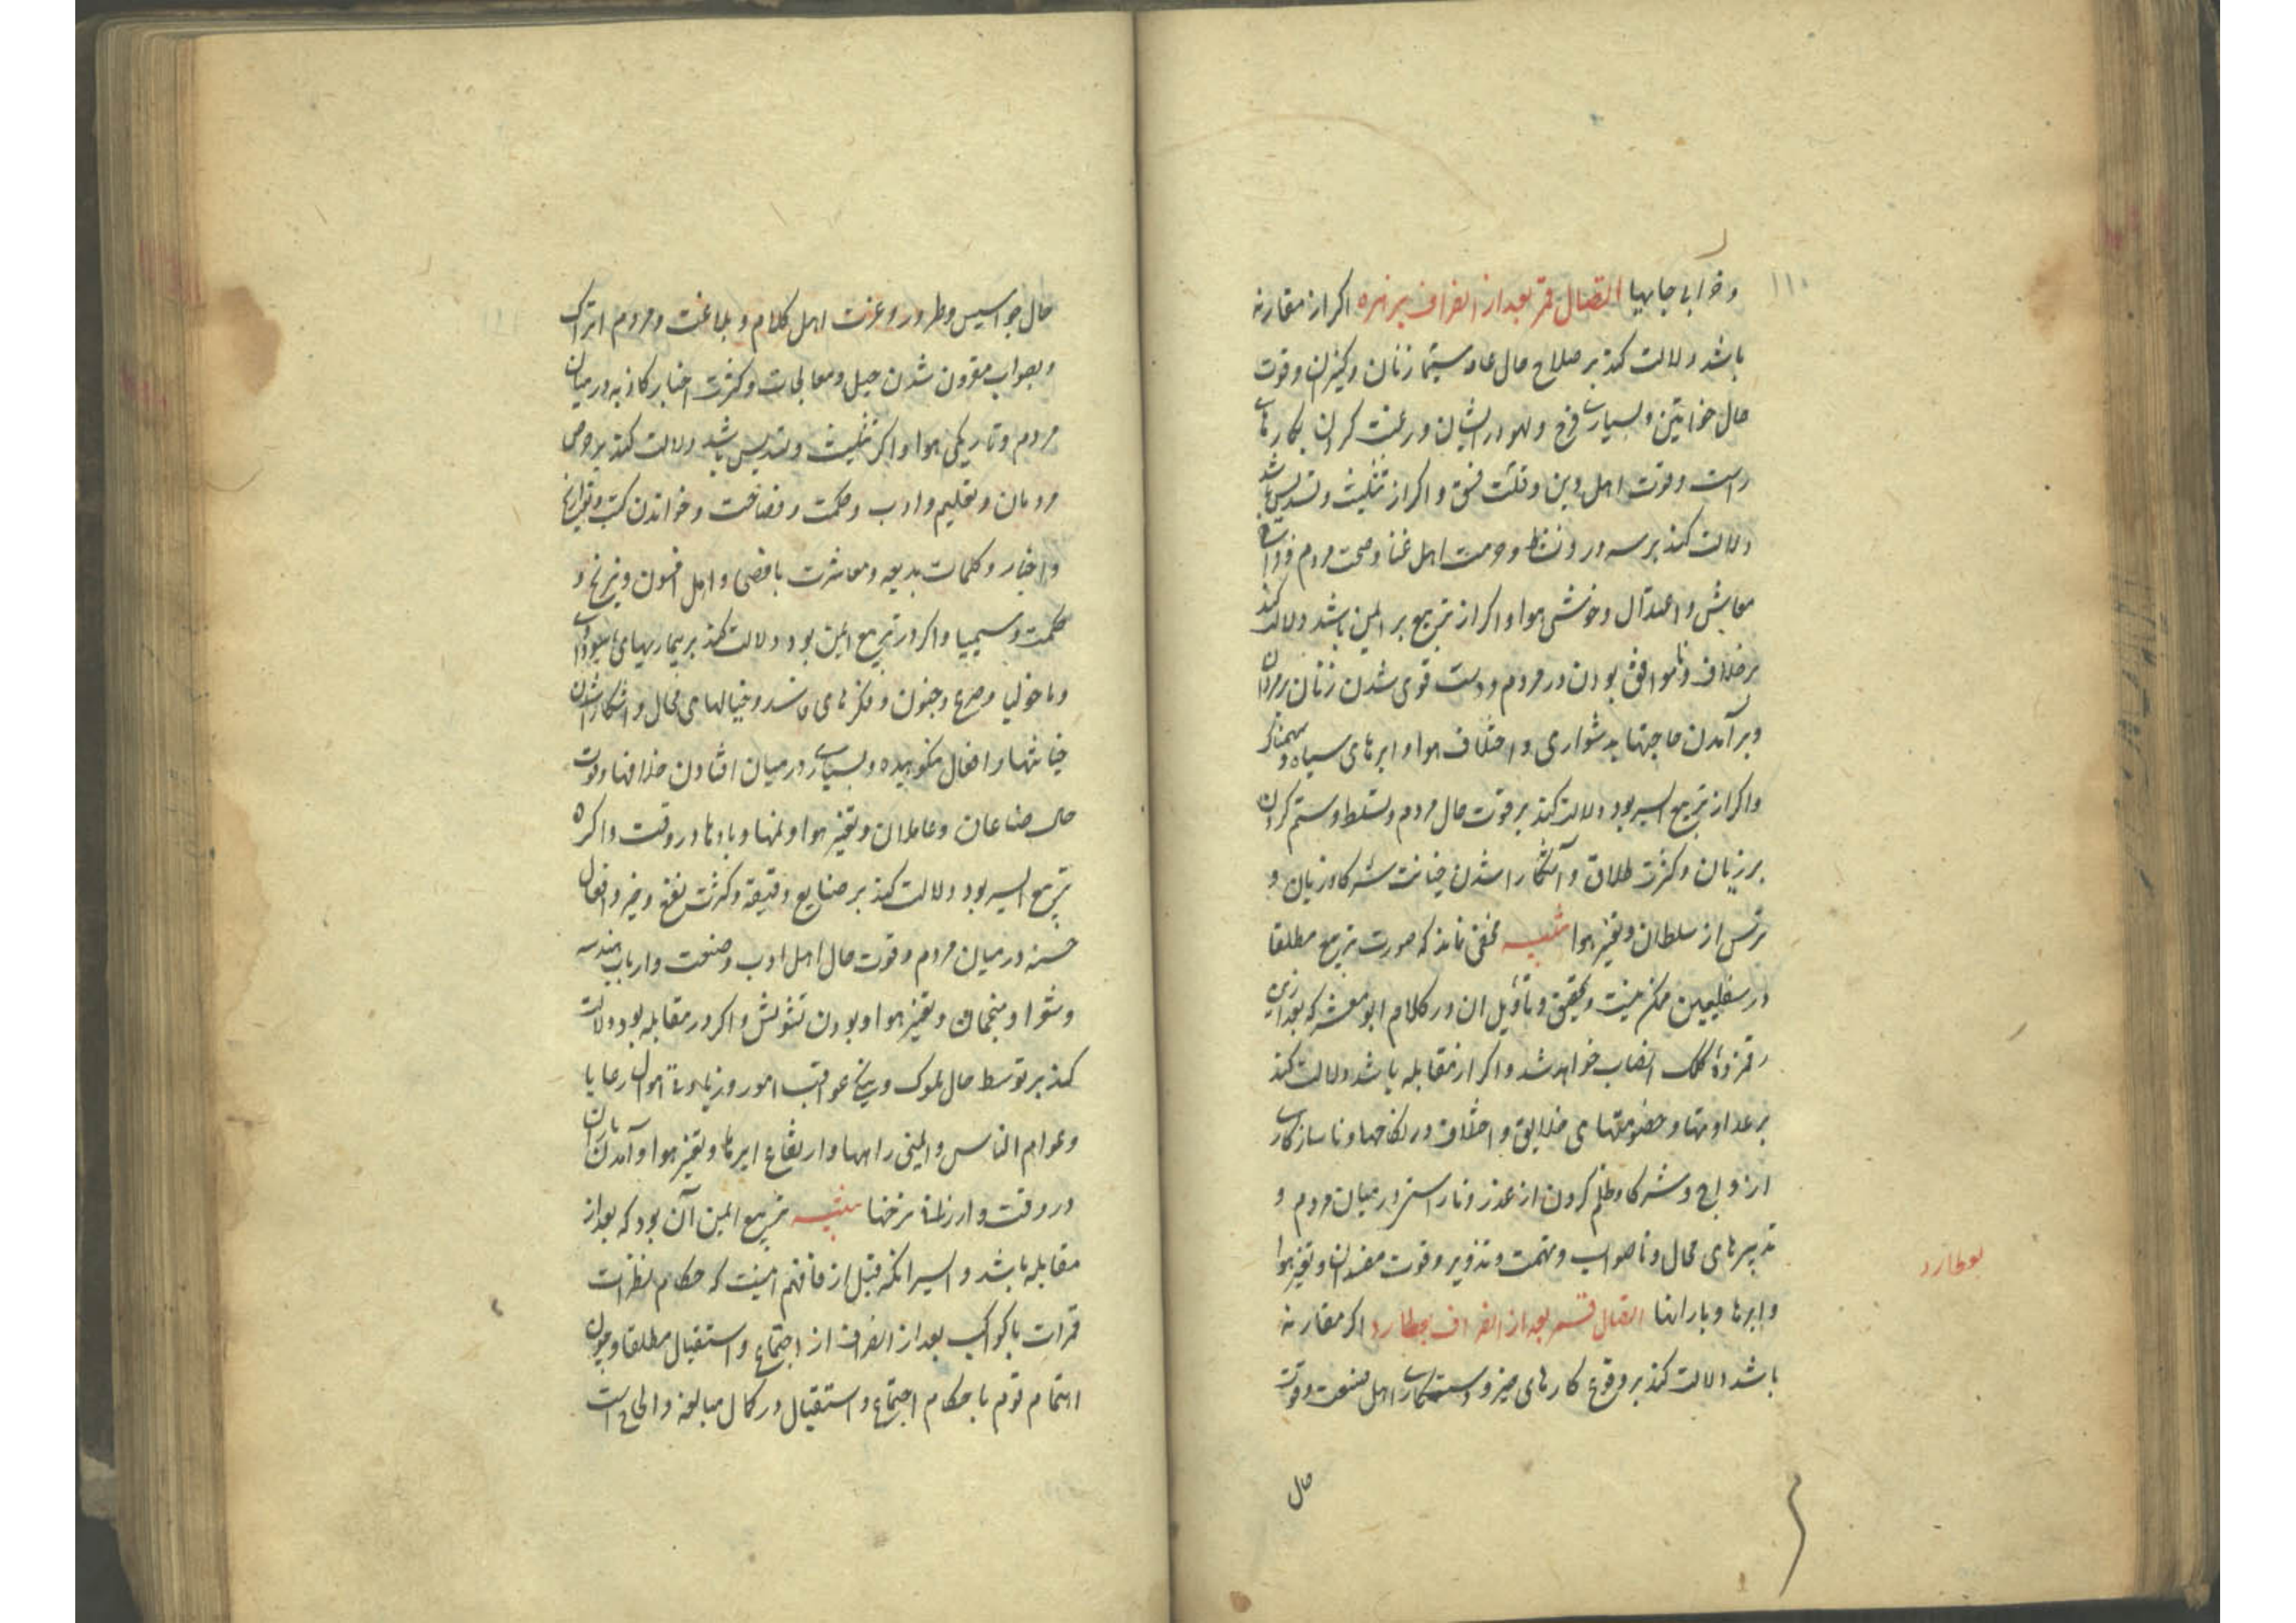 ۱۱۰
و خرابی جایها اتصال قمر بعد از انصراف بزهره اکر از مقارنه
باشد دلالت کند بر صلاح حال عامه سیما زنان و کنیزان و قوت
حال خواتین و بسیاری فرح و لهو در ایشان و رغبت کردن بکارهای
راست و قوت اهل دین و قلت فسق و اکر از تثلیث و تسدیس باشد
دلالت کند بر سرور و نشاط و حرمت اهل غنا و صحت مردم و فراخی
معایش و اعتدال و خوشی هوا و اکر از تربیع بر ایمن باشد دلالت کند
بر خلاف و ناموافق بودن در مردم و دست قوی شدن زنان بر مردان
و برآمدن حاجتها بدشواری و اختلاف هوا و ابرهای سیاه و سهمناک
و اکر از تربیع ایسر بود دلالت کند بر قوت حال مردم و تسلط و ستم کردن
بر زنان و کثرت طلاق و آشکارا شدن خیانت شرکا و زنان و
ترس از سلطان و تغیر هوا تنبیه مخفی نماند که صورت تربیع مطلقا
در سفلیین ممکن نیست و تحقیق و تأویل ان در کلام ابو معشر که بعد ازین
رقم زدهٔ کلک انصاب خواهد شد و اکر از مقابله باشد دلالت کند
بر عداوتها و خصومتهای خلایق و اختلاف در نکاحها و ناسازکاری
ازواج و شرکا و ظلم کردن از عذر و ناراستی در میان مردم و
تدبیرهای محال و ناصواب و تهمت و تزویر و قوت مفسدان و تغیر هوا
و ابرها و بارانها اتصال قمر بعد از انصراف بعطارد اکر مقارنه
باشد دلالت کند بر وقوع کارهای خیر و رستکاری اهل صنعت و قوت
بعطارد
حال
حال جواسیس و طرور و عزت اهل کلام و بلاغت و مردم اتراک
و بصواب مقرون شدن حیل و معالجات و کثرت اخبار کاذبه در میان
مردم و تاریکی هوا و اکر تثلیث و تسدیس باشد دلالت کند بر حرص
مردمان و تعلیم و ادب و حکمت و فصاحت و خواندن کتب و تواریخ
و اخبار و کلمات بدیعه و معاشرت با فصحا و اهل افسون و نیرنج و
حکمت و سیمیا و اکر در تربیع ایمن بود دلالت کند بر بیماریهای سوداوی
و مالیخولیا و صرع و جنون و فکرهای فاسد و خیالهای محال و اشکارا شدن
خیانتها و افعال نکوهیده و بسیاری در میان افتادن خلافها و قوت
حال صناعان و عاملان و تغیر هوا و نمها و بادها در وقت و اکر در
تربیع ایسر بود دلالت کند بر صنایع دقیقه و کثرت نفع و خیر و افعال
حسنه در میان مردم و قوت حال اهل ادب و صنعت و ارباب هندسه
و شعرا و منجمان و تغیر هوا و بودن تشویش و اکر در مقابله بود دلالت
کند بر توسط حال ملوک و نیکی عواقب امور و زیادتی اموال رعایا
و عوام الناس و ایمنی راهها و ارتفاع ابرها و تغیر هوا و آمدن باران
در وقت و ارزانی نرخها تنبیه تربیع ایمن آن بود که بعد از
مقابله باشد و ایسر انکه قبل از فافهم اینست که حکام نظرات
قمرات با کواکب بعد از انصراف از اجتماع و استقبال مطلقا و چون
اهتمام قوم باحکام اجتماع و استقبال در کمال مبالغه و الحاح است